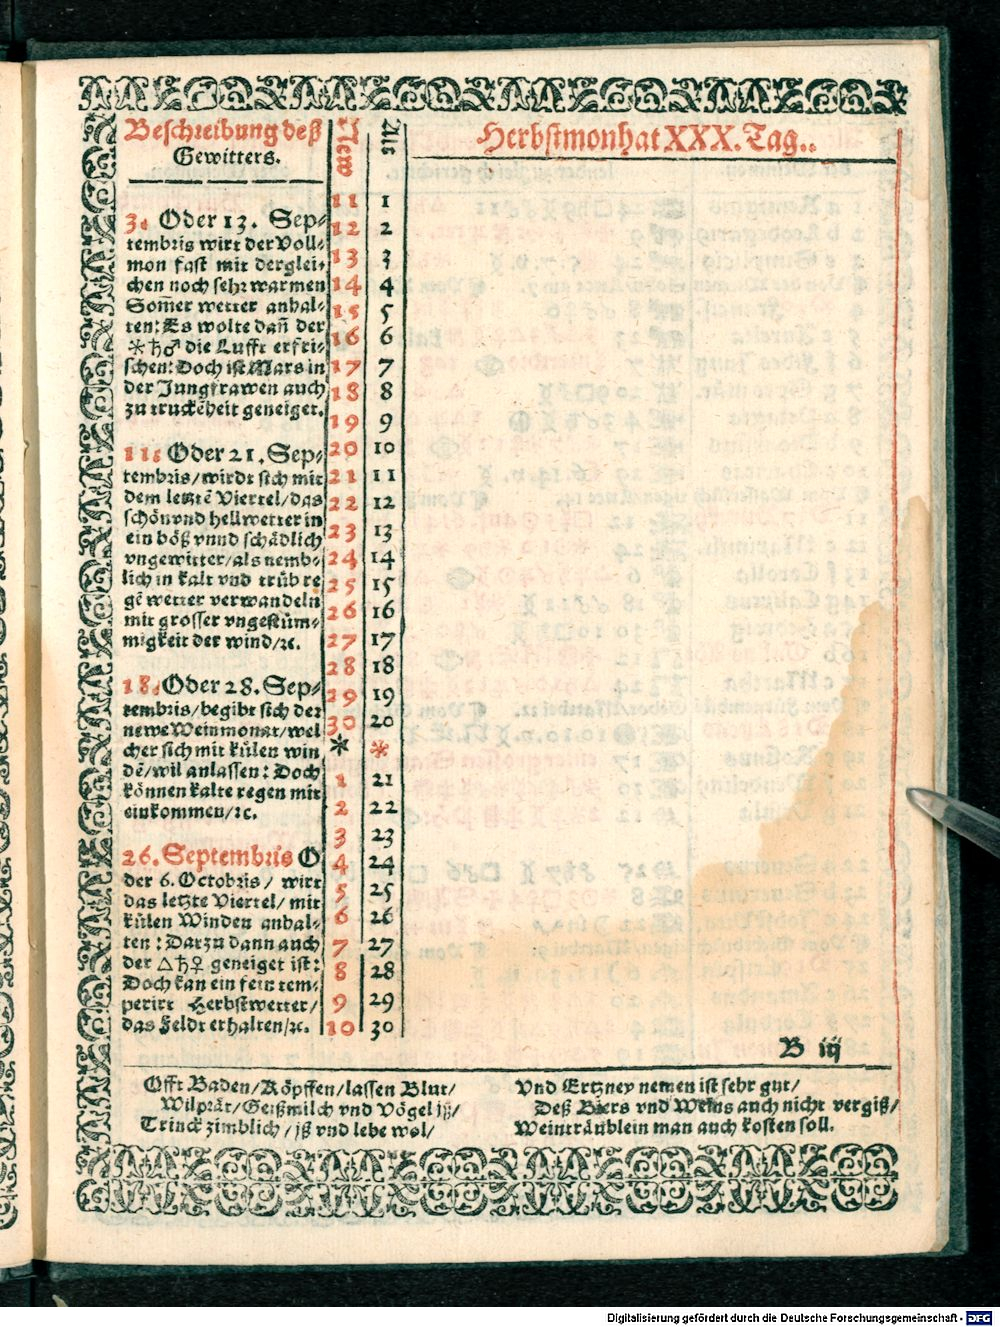 Beschreibung deß
Gewitters.
3. Oder 13. Sep-
tembris wirt der Voll-
mon fast mit derglei-
chen noch sehr warmen
Som̄er wetter anhal-
ten: Es wolte dañ der
⚹♄♂ die Lufft erfri-
schen: Doch ist Mars in
der Jungfrawen auch
zu truckēheit geneiget.
11. Oder 21. Sep-
tembris/wirdt sich mit
dem letztē Viertel/das
schön vnd hell wetter in
ein böß vnnd schädlich
vngewitter/als nemb-
lich in kalt vnd trüb re
gē wetter verwandeln
mit grosser vngestüm-
migkeit der wind/ꝛc.
18. Oder 28. Sep-
tembris/begibt sich der
newe Weinmonat/wel
cher sich mit külen win
dē/wil anlassen: Doch
können kalte regen mit
einkommen/ꝛc.
26. Septembris O
der 6. Octobris/ wirt
das letzte Viertel/ mit
külen Winden anhal-
ten: Darzu dann auch
der △♄♀ geneiget ist:
Doch kan ein fein tem-
perirt Herbstwetter/
das Feldt erhalten/ꝛc.
New Alt
11 1
12 2
13 3
14 4
15 5
16 6
17 7
18 8
19 9
20 10
21 11
22 12
23 13
24 14
25 15
26 16
27 17
28 18
29 19
30 20
* *
1 21
2 22
3 23
4 24
5 25
6 26
7 27
8 28
9 29
10 30
Herbstmonhat XXX. Tag..
B iij
Offt Baden/Köpffen/lassen Blut/
Wilprät/Geißmilch vnd Vögel iß/
Trinck zimblich/iß vnd lebe wol/
Vnd Ertzney nemen ist sehr gut/
Deß Biers vnd Weins auch nicht vergiß/
Weinträublein man auch kosten soll.
Digitalisierung gefördert durch die Deutsche Forschungsgemeinschaft - DFG